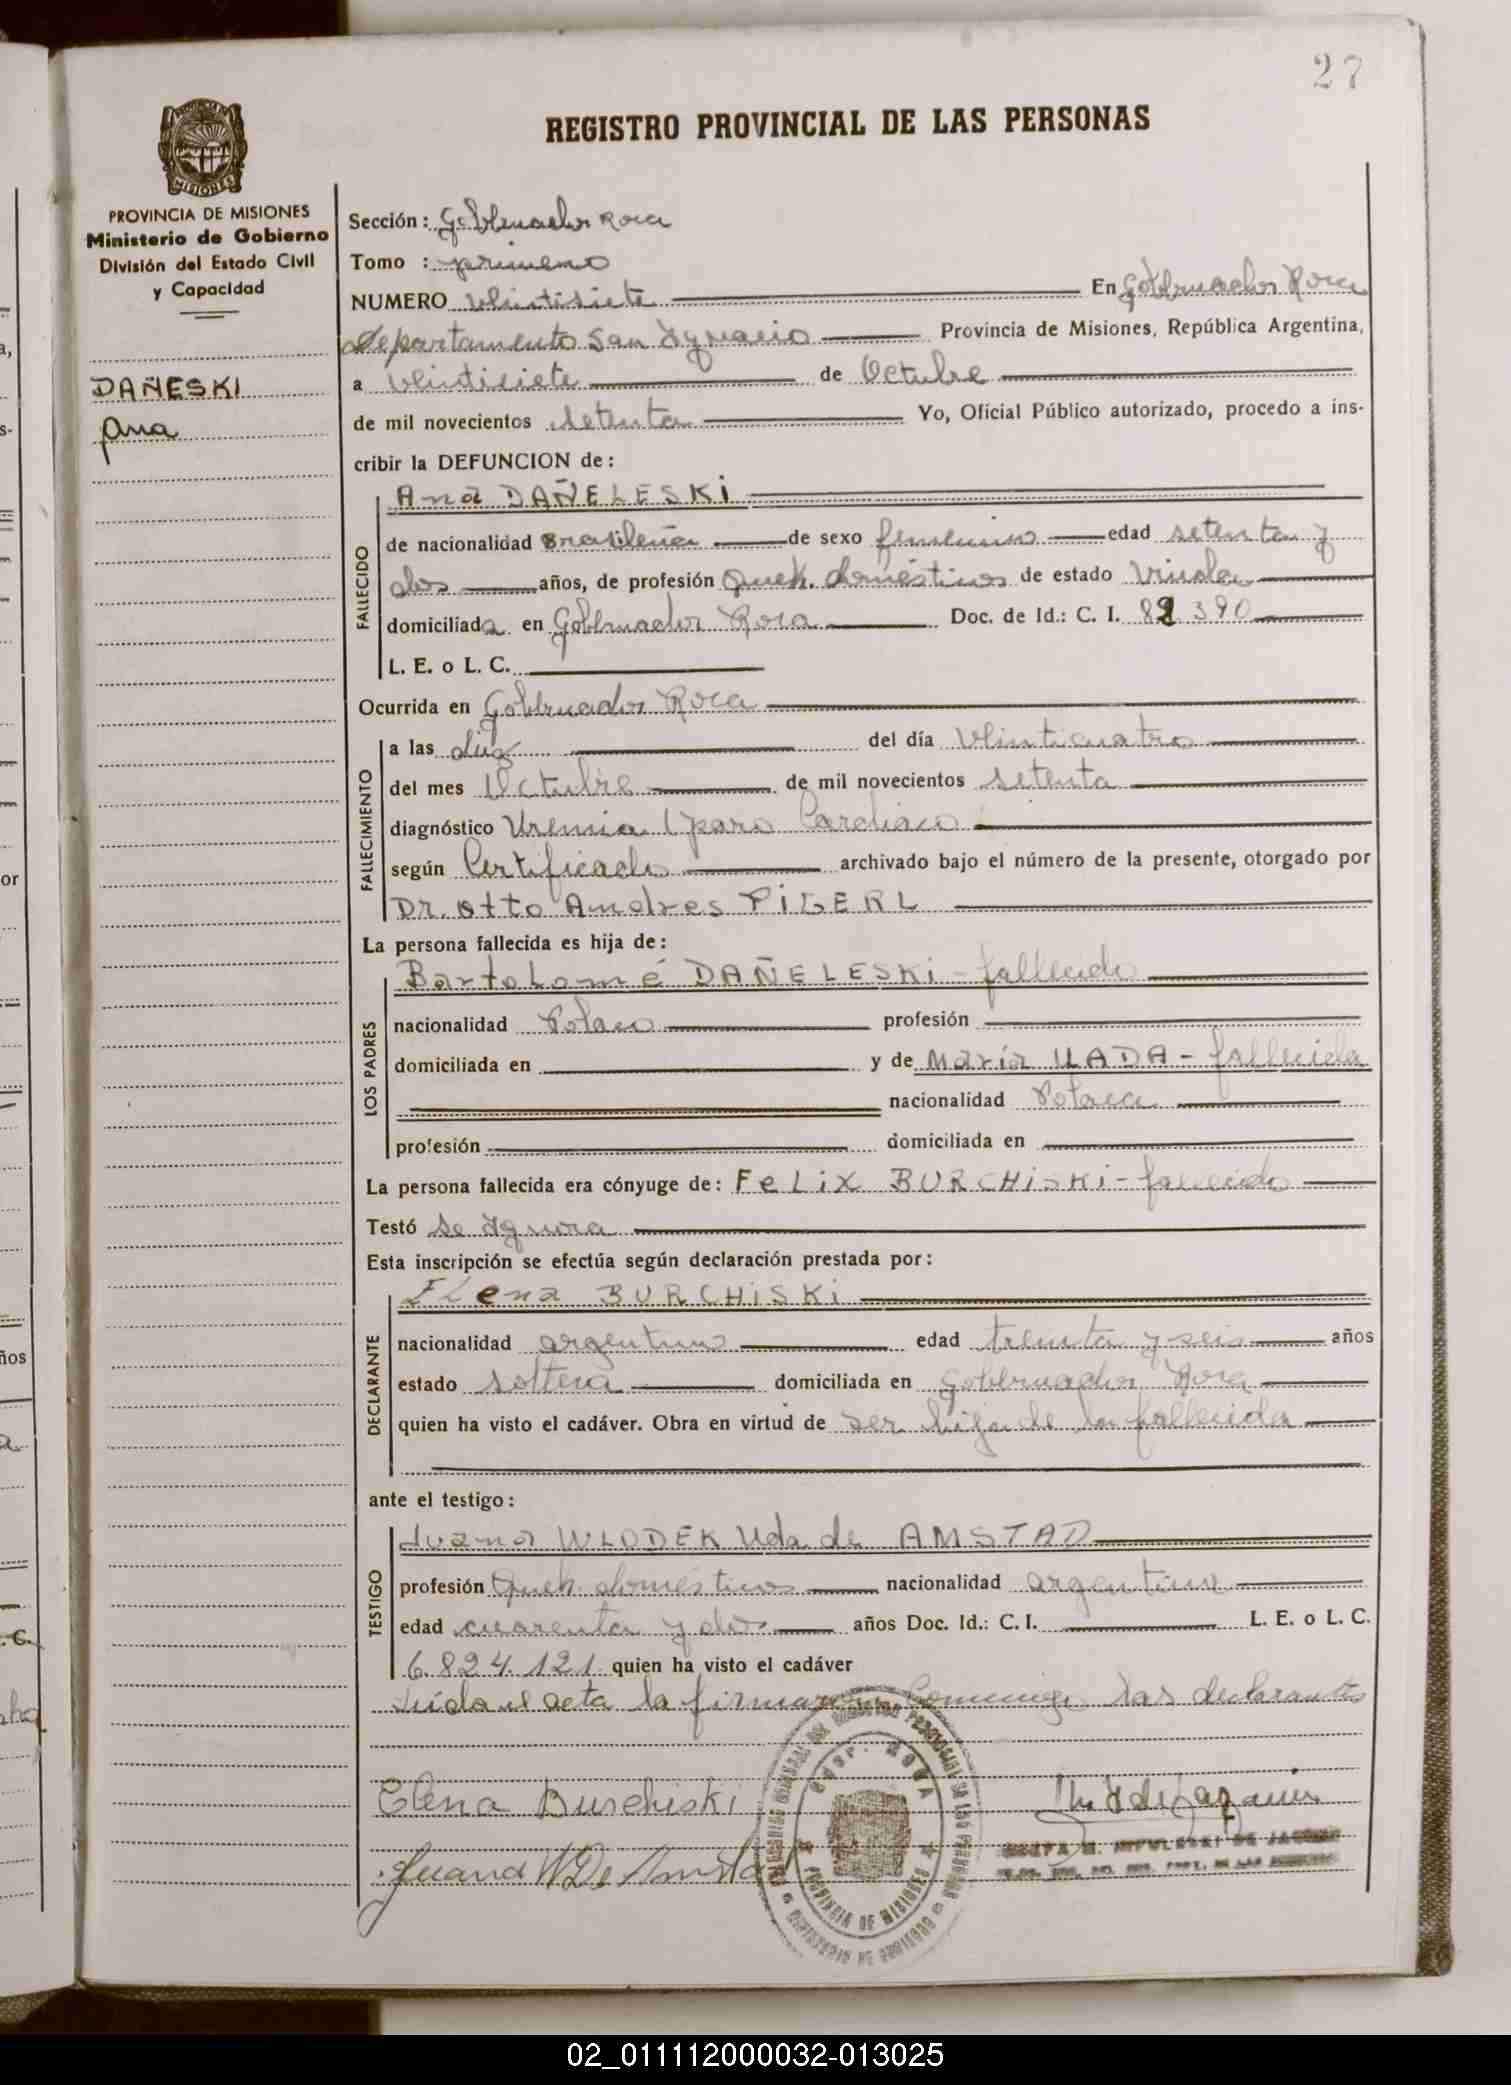 27
REGISTRO PROVINCIAL DE LAS PERSONAS
PROVINCIA DE MISIONES
Ministerio de Gobierno
División del Estado Civil
y Capacidad
DAÑESKI
Ana
Sección: Gobernador Roca
Tomo : primero
NUMERO veintisiete En Gobernador Roca
Departamento San Ignacio Provincia de Misiones, República Argentina,
a veintisiete de Octubre
de mil novecientos setenta Yo, Oficial Público autorizado, procedo a ins-
cribir la DEFUNCION de:
FALLECIDO
Ana DAÑELESKI
de nacionalidad Brasileña de sexo femenino edad setenta y
dos años, de profesión Queh. domésticos de estado Viuda
domiciliada en Gobernador Roca Doc. de Id.: C. I. 82.390
L. E. o L. C.
Ocurrida en Gobernador Roca
FALLECIMIENTO
a las diez del día veinticuatro
del mes Octubre de mil novecientos setenta
diagnóstico Uremia (paro Cardiaco
según Certificado archivado bajo el número de la presente, otorgado por
Dr. Otto Andres PIGERL
La persona fallecida es hija de:
LOS PADRES
Bartolomé DAÑELESKI - fallecido
nacionalidad Polaco profesión
domiciliada en y de María ULADA - fallecida
nacionalidad Polaca
profesión domiciliada en
La persona fallecida era cónyuge de: FELIX BURCHISKI - fallecido
Testó se ignora
Esta inscripción se efectúa según declaración prestada por:
DECLARANTE
ELena BURCHISKI
nacionalidad argentina edad treinta y seis años
estado soltera domiciliada en Gobernador Roca
quien ha visto el cadáver. Obra en virtud de ser hija de la fallecida
ante el testigo:
TESTIGO
Juana WLODEK Vda. de AMSTAD
profesión Queh. domésticos nacionalidad argentina
edad cuarenta y dos años Doc. Id.: C. I. L. E. o L. C.
6.824.121 quien ha visto el cadáver
Leida el acta la firmaron Conmigo las declarantes
Elena Burchiski
Juana W De Amstad
GOBR. ROCA
PROVINCIA DE MISIONES
MINISTERIO DE GOBIERNO
02_011112000032-013025